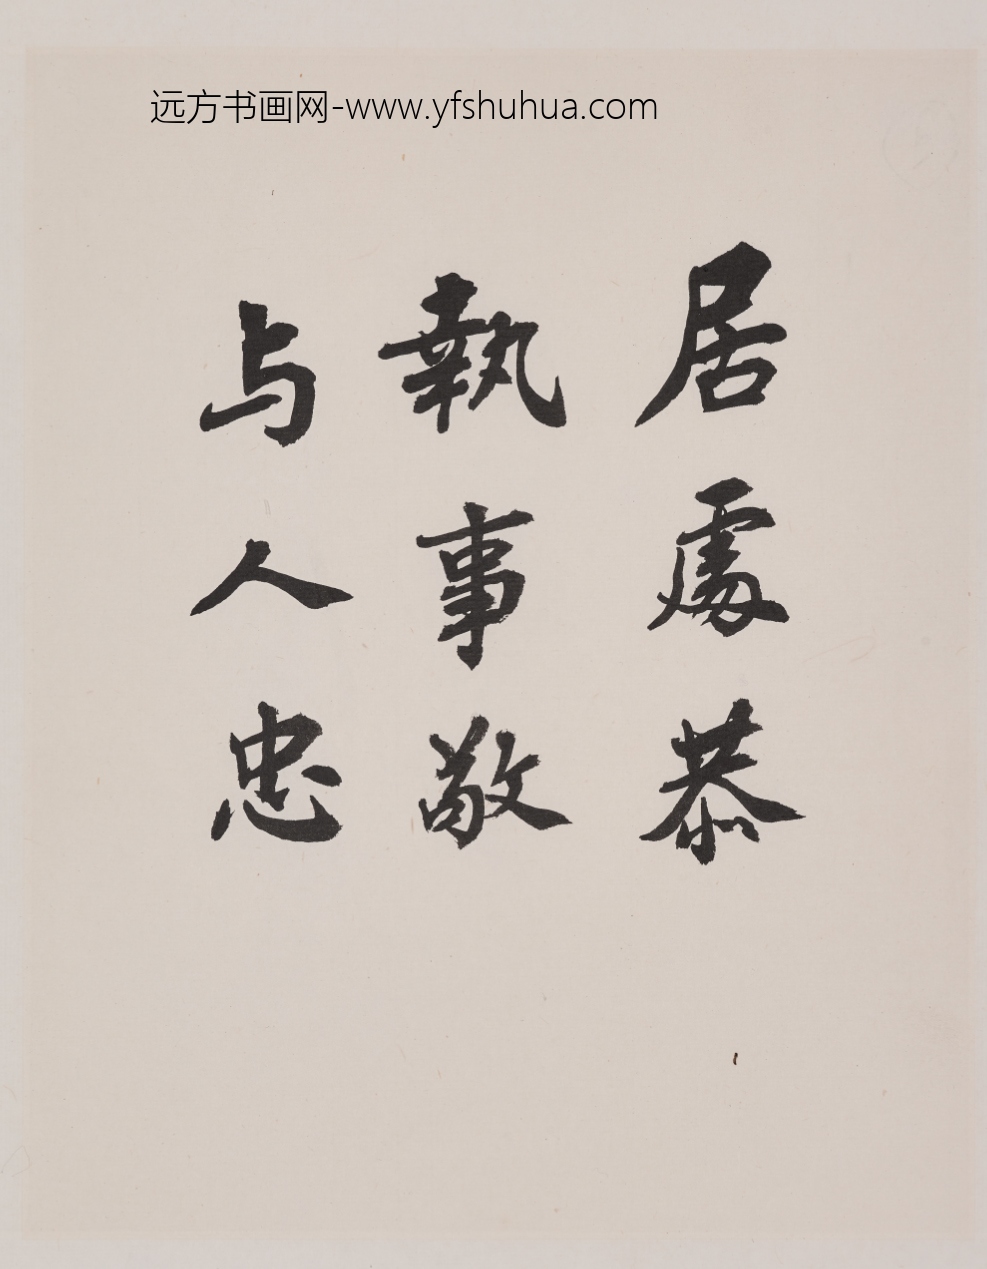 远方书画网-www.yfshuhua.com
居處恭
執事敬
与人忠